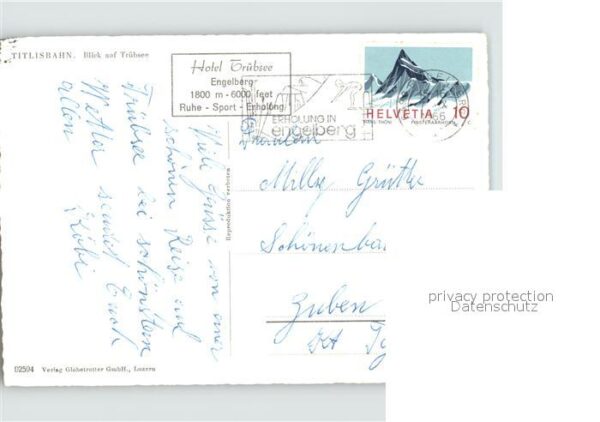 TITLISBAHN. Blick auf Trübsee
Hotel Trübsee
Engelberg
1800 m - 6000 feet
Ruhe - Sport - Erholung
ERHOLUNG IN
engelberg
HELVETIA 10
FINSTERAARHORN
Viele Grüsse von einer
schönen Reise auf
Trübsee bei schönstem
Wetter sendet Euch
allen
Milly
Schönenba
Zuben
Kt
Reproduktion verboten
02594 Verlag Globetrotter GmbH., Luzern
privacy protection
Datenschutz